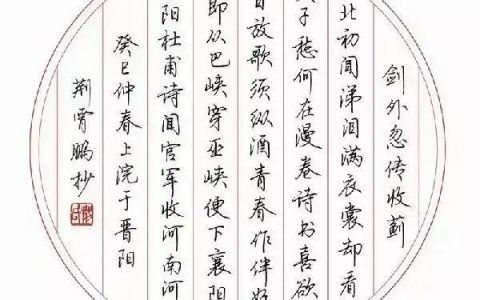 剑外忽传收蓟
北初闻涕泪满衣裳却看
子愁何在漫卷诗书喜欲
日放歌须纵酒青春作伴好
即从巴峡穿巫峡便下襄阳
阳杜甫诗闻官军收河南河
癸巳仲春上浣于晋阳
荆霄鹏抄